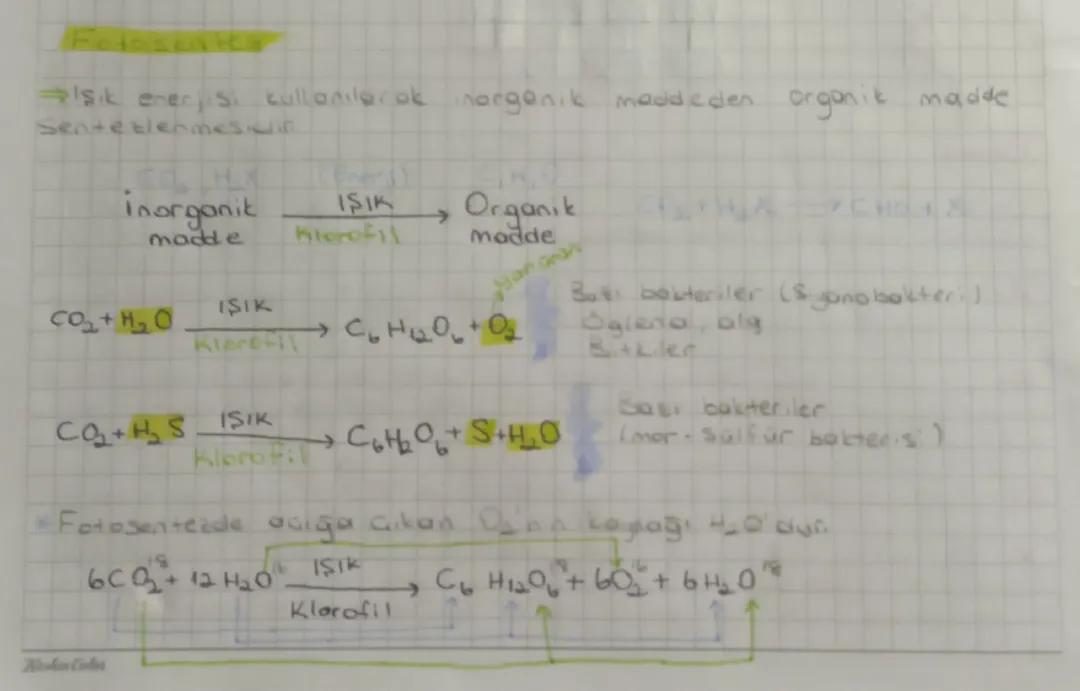 Fotosentez
⇒ Işık enerjisi kullanılarak inorganik maddeden organik madde
sentezlenmesidir.
CO₂, H₂X (Enerji)
inorganik madde IŞIK Klorofil → Organik madde
Yan ürün
CO₂ + H₂O IŞIK Klorofil → C₆H₁₂O₆ + O₂
Bazı bakteriler (Siyanobakteri)
Öglena, alg
Bitkiler
CO₂ + H₂S IŞIK Klorofil → C₆H₂O₆ + S + H₂O
Bazı bakteriler
(mor-sülfür bakterisi)
Fotosentezde açığa çıkan O₂'nin kaynağı H₂O'dur.
6CO₂¹⁸ + 12H₂O¹⁶ IŞIK Klorofil → C₆H₁₂O₆¹⁸ + 6O₂¹⁶ + 6H₂O¹⁸